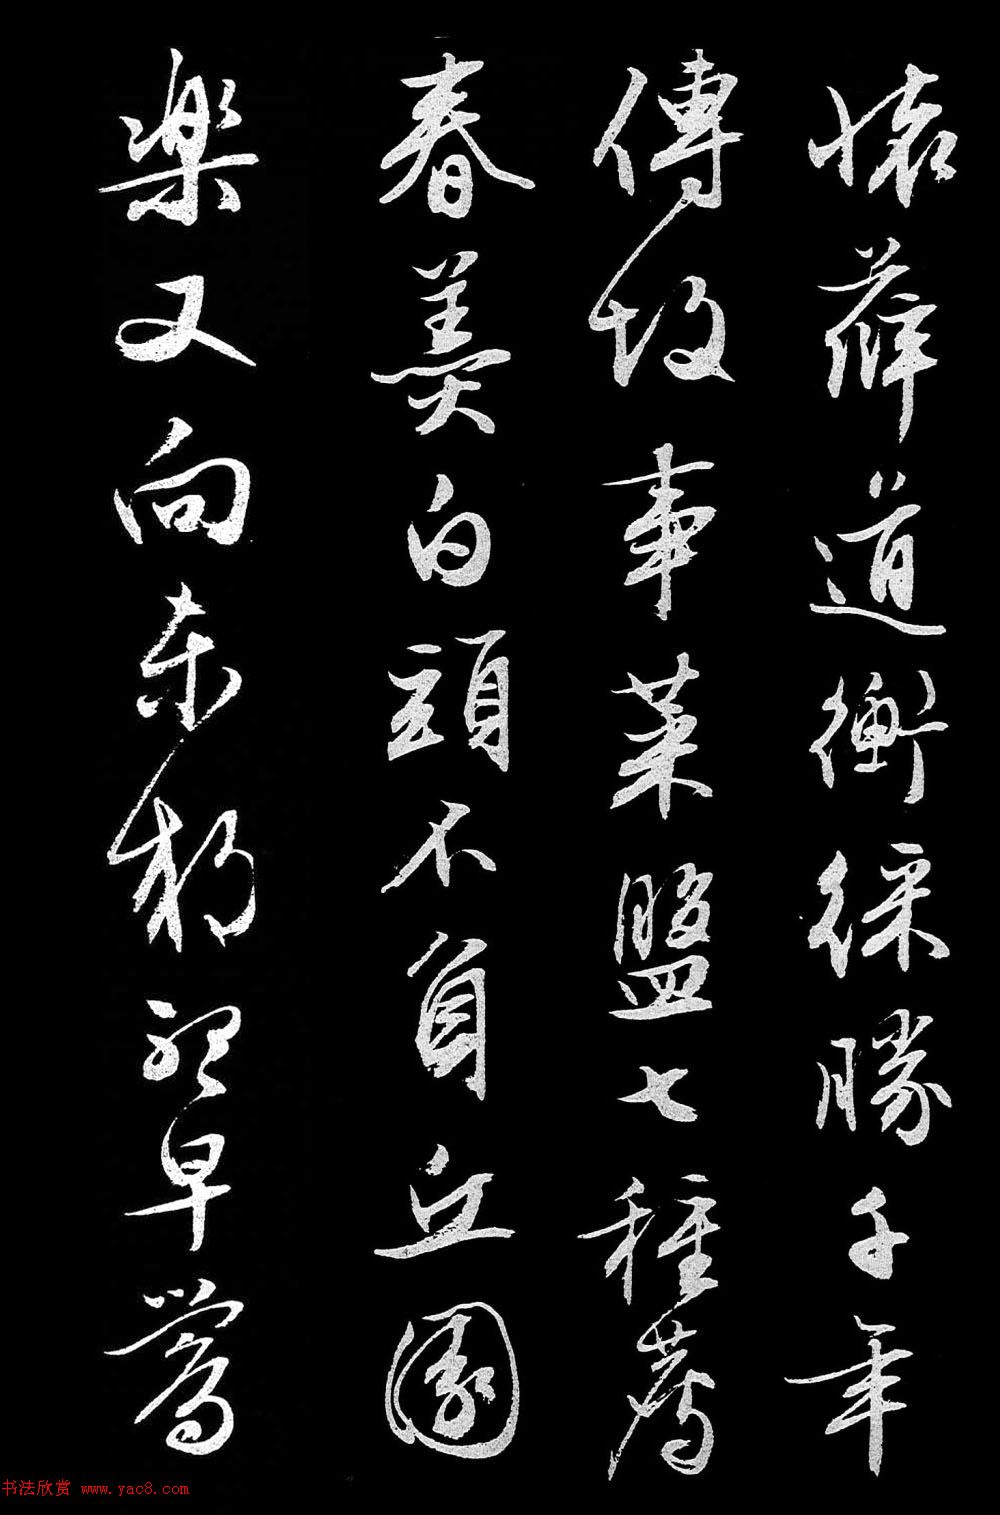 懷薛道衡綵勝千年
傳故事菜盤七種薦
春羹白頭不負丘園
樂又向東郊聽早鶯
书法欣赏 www.yac8.com